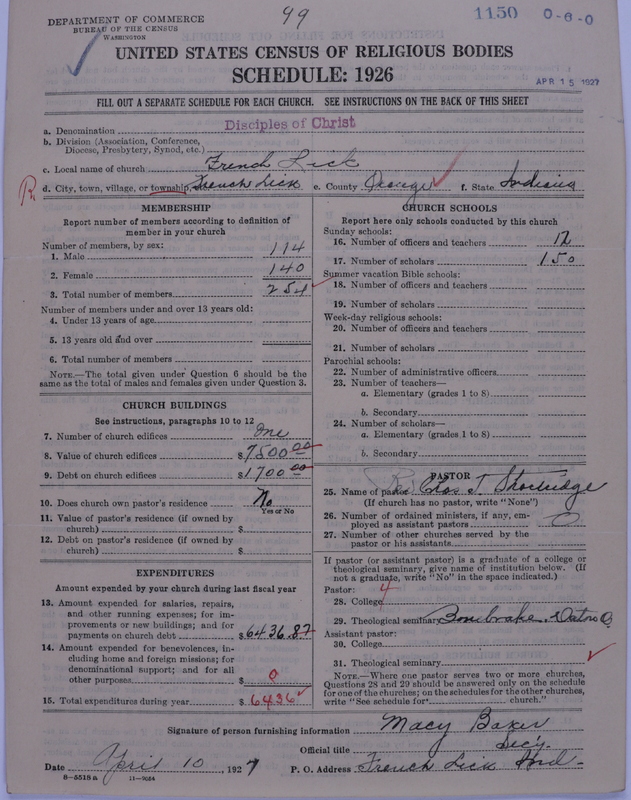 DEPARTMENT OF COMMERCE
BUREAU OF THE CENSUS
WASHINGTON
99
1150
0-6-0
UNITED STATES CENSUS OF RELIGIOUS BODIES
SCHEDULE: 1926
APR 15 1927
FILL OUT A SEPARATE SCHEDULE FOR EACH CHURCH. SEE INSTRUCTIONS ON THE BACK OF THIS SHEET
a. Denomination Disciples of Christ
b. Division (Association, Conference, Diocese, Presbytery, Synod, etc.)
c. Local name of church French Lick
d. City, town, village, or township French Lick e. County Orange f. State Indiana
MEMBERSHIP
Report number of members according to definition of member in your church
Number of members, by sex:
1. Male 114
2. Female 140
3. Total number of members 254
Number of members under and over 13 years old:
4. Under 13 years of age
5. 13 years old and over
6. Total number of members
NOTE.—The total given under Question 6 should be the same as the total of males and females given under Question 3.
CHURCH BUILDINGS
See instructions, paragraphs 10 to 12
7. Number of church edifices One
8. Value of church edifices $7500.00
9. Debt on church edifices $1700.00
10. Does church own pastor's residence No
Yes or No
11. Value of pastor's residence (if owned by church) $
12. Debt on pastor's residence (if owned by church) $
EXPENDITURES
Amount expended by your church during last fiscal year
13. Amount expended for salaries, repairs, and other running expenses; for improvements or new buildings; and for payments on church debt $6436.87
14. Amount expended for benevolences, including home and foreign missions; for denominational support; and for all other purposes $ 0
15. Total expenditures during year $ 6436
CHURCH SCHOOLS
Report here only schools conducted by this church
Sunday schools:
16. Number of officers and teachers 12
17. Number of scholars 150
Summer vacation Bible schools:
18. Number of officers and teachers
19. Number of scholars
Week-day religious schools:
20. Number of officers and teachers
21. Number of scholars
Parochial schools:
22. Number of administrative officers
23. Number of teachers—
a. Elementary (grades 1 to 8)
b. Secondary
24. Number of scholars—
a. Elementary (grades 1 to 8)
b. Secondary
PASTOR
25. Name of pastor Rev. J. Shortridge
(If church has no pastor, write "None")
26. Number of ordained ministers, if any, employed as assistant pastors 0
27. Number of other churches served by the pastor or his assistants
If pastor (or assistant pastor) is a graduate of a college or theological seminary, give name of institution below. (If not a graduate, write "No" in the space indicated.)
Pastor: 4
28. College
29. Theological seminary Bonebrake, O.
Assistant pastor:
30. College
31. Theological seminary
NOTE.—Where one pastor serves two or more churches, Questions 28 and 29 should be answered only on the schedule for one of the churches; on the schedules for the other churches, write "See schedule for church."
Signature of person furnishing information Macy Baker
Official title Sec'y.
Date April 10, 1927 P. O. Address French Lick Ind.
8-5518a 11-9054